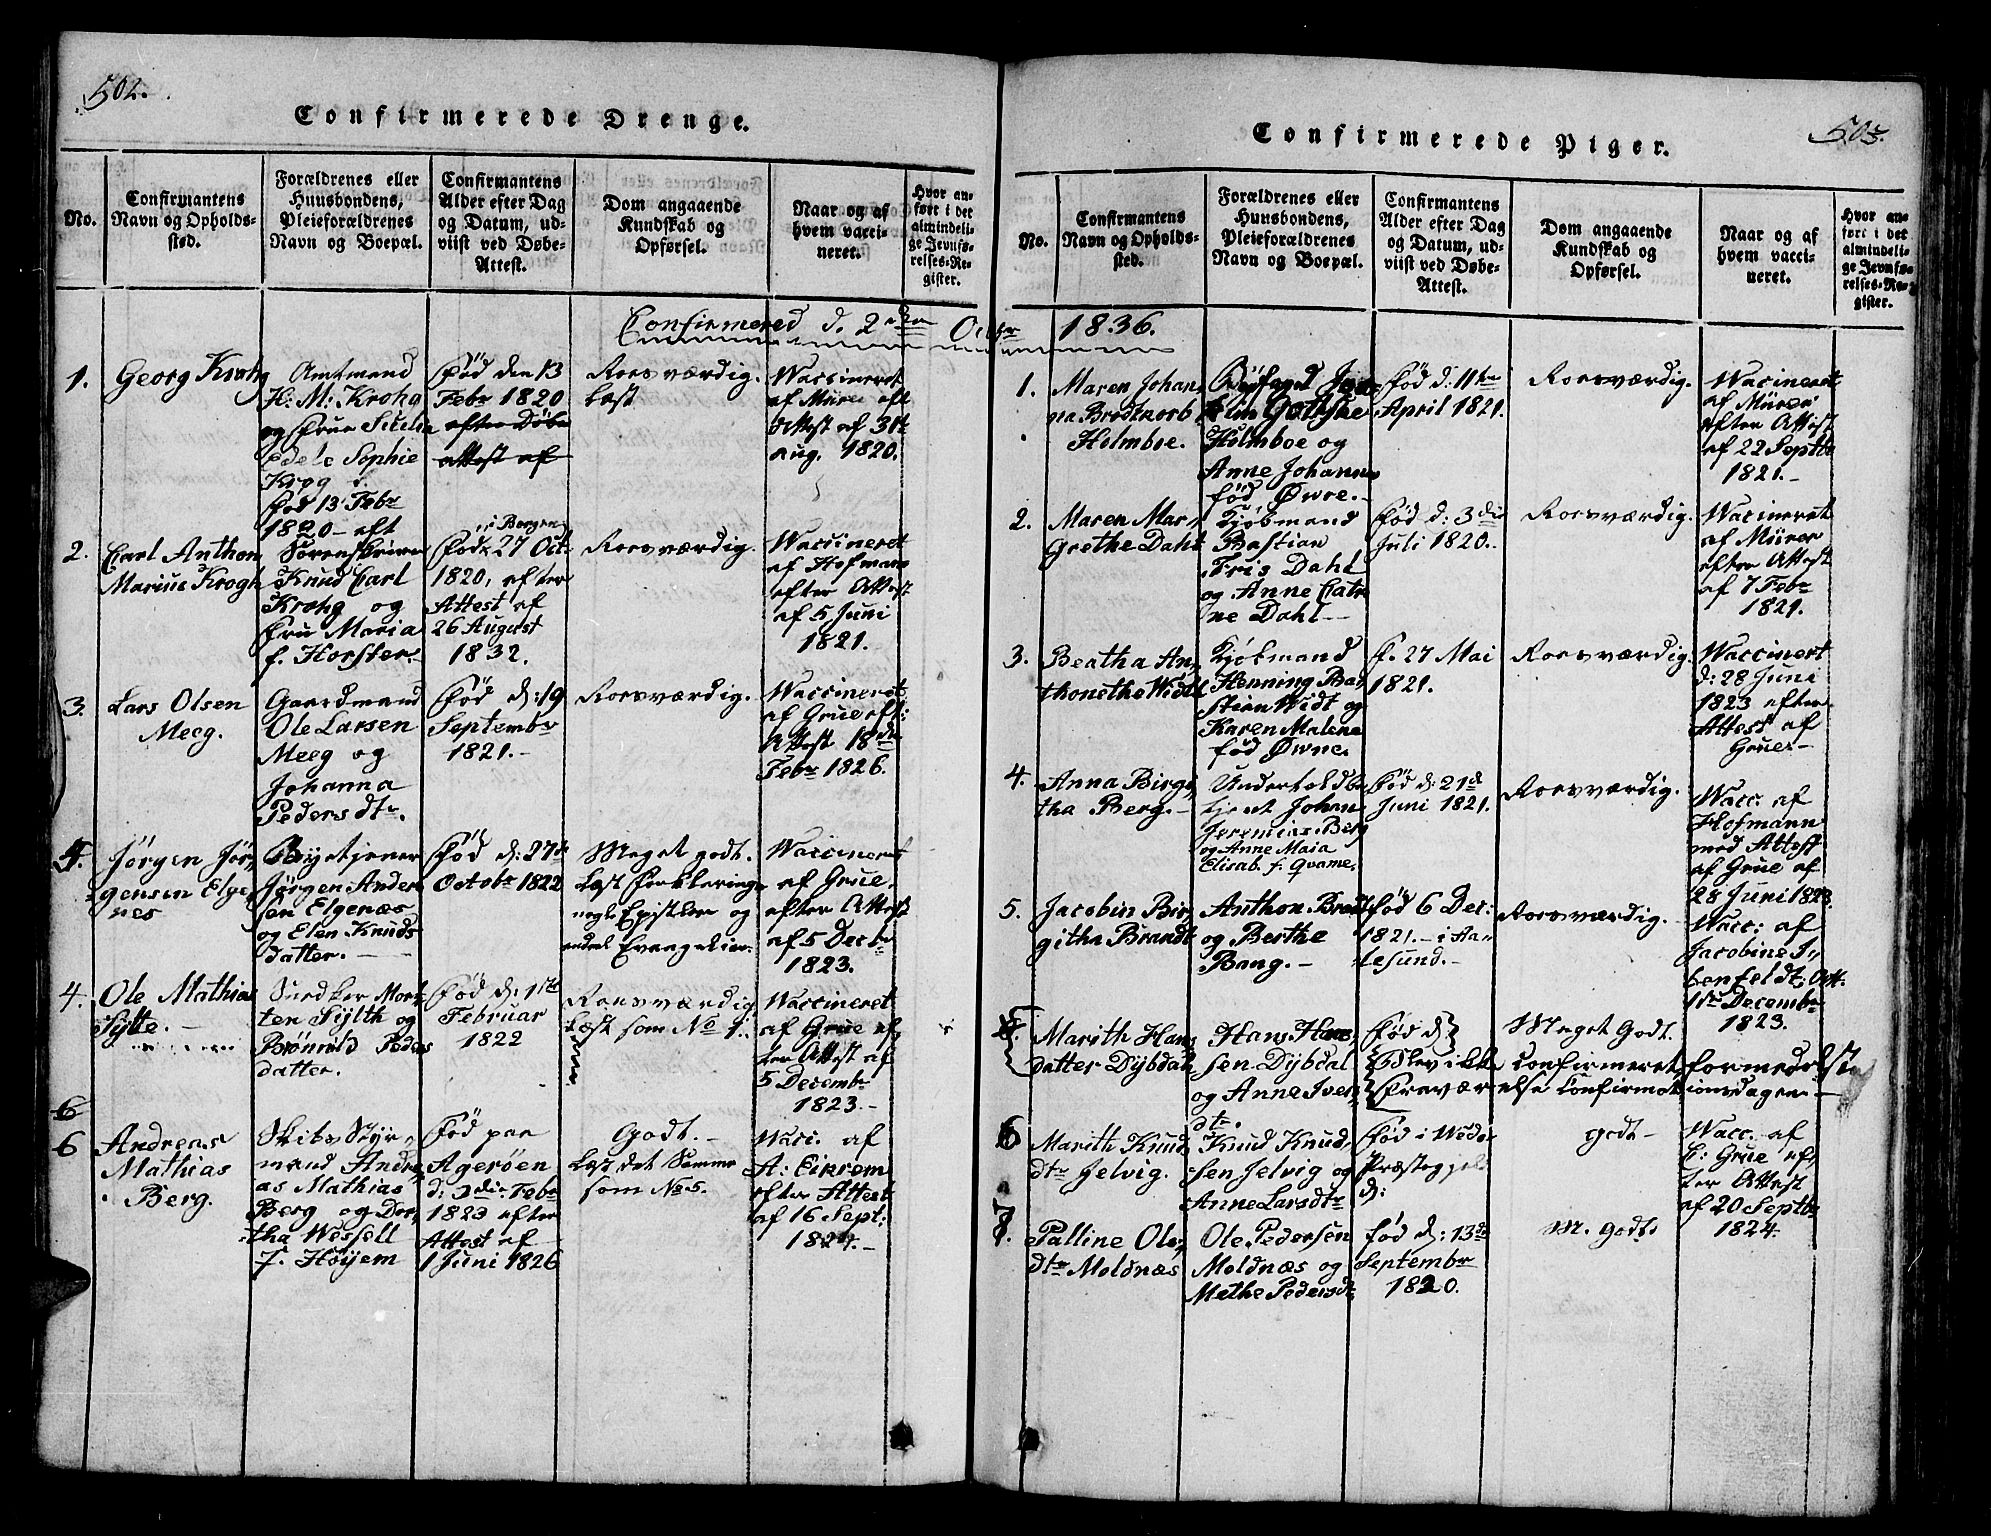 502.
Confirmerede Drenge.
No.
Confirmantens
Navn og Opholds-
sted.
Forældrenes eller
Huusbondens,
Pleieforældrenes
Navn og Boepæl.
Confirmantens
Alder efter Dag
og Datum, ud-
viist ved Døbe-
Attest.
Dom angaaende
Kundskab og
Opførsel.
Naar og af
hvem vacci-
neret.
Hvor an-
ført i det
almindeli-
ge Jevnfø-
relses-Re-
gister.
Confirmered d. 2den Octbr 1836.
1.
Georg Krohg
Amtmand
H: M: Krohg
og Frue Sicelia
Edele Sophie
Krog
fød 13 Febr
1820 - eft
Fød den 13
Febr 1820
efter Døbe
attest af
Roesværdig.
Læst
Vaccineret
af Müre eft
Attest af 31te
aug. 1820.
2.
Carl Anthon
Marius Krogh
Sørenskriver
Knud Carl
Krohg og
Fru Maria
f. Horster.
i Bergen
Fød 27 Oct:
1820, efter
Attest af
26 August
1832.
Roesværdig.
Vaccineret
af Hofmann
efter Attest
af 5 Juni
1821.
3.
Lars Olsen
Meeg.
Gaardmand
Ole Larsen
Meeg og
Johanna
Pedersdtr.
Fød d: 19
Septembr
1821.-
Roesværdig.
Vaccineret
af Grue eft:
Attest 18de
Febr 1826.
5.
Jørgen Jør-
gensen Elge
nes
Byetjener
Jørgen Ander
sen Elgenæs
og Elen Knuds
datter.
Fød d: 27de
Octobr 1822
Meget godt.
Læst Forklaringe
nogle Epistler og
endeel Evangelier.
Vaccineret
af Grue.
efter Attest
af 5 Decbr
1823.
4.
Ole Mathias
Sylte.
Snedker Mort-
ten Sylth og
Brønnild Peders
datter.
Fød d: 1ste
Februar
1822
Roesværdig
Læst som No 1.
Vaccineret
af Grue ef
ter Attest af
5 Decembr
1823.-
6
6
Andreas
Mathias
Berg.
Skibs Styr-
mand Andre
as Mathias
Berg og Dor-
tha Wessell
f. Høyem
Fød paa
Agerøen
d: 3die Febr
1823 efter
Attest af
1 Juni 1826
Godt.-
Læst det Samme
som No 5.
Vacc. af
A: Eikrem
efter Attest
af 16 Sept:
1824.-
503.
Confirmerede Piger.
No.
Confirmantens
Navn og Opholds-
sted.
Forældrenes eller
Huusbondens,
Pleieforældrenes
Navn og Boepæl.
Confirmantens
Alder efter Dag
og Datum, ud-
viist ved Døbe-
Attest.
Dom angaaende
Kundskab og
Opførsel.
Naar og af
hvem vacci-
neret.
Hvor an-
ført i det
almindeli-
ge Jevnfø-
relses-Re-
gister.
1.
Maren Johan
na Brodtkorb
Holmboe.
Byfoged
Holmboe og
Anne Johanne
fød Øwre.-
Fød d: 11te
April 1821.
Roesværdig.
Vacineret
af Mürer
efter Attest
af 22 Septbr
1821.-
2.
Maren Mar-
grethe Dahl
Kjøbmand
Bastian
Fris Dahl
og Anne Catr
ne Dahl-
Fød d: 3die
Juli 1820.
Roesværdig.
Vacineret
af Mürer
efter Attest
af 7 Febr
1821.
3.
Beatha An-
thonethe Widt
Kjøbmand
Henning Ba
stian Widt og
Karen Malene
fød Øwne.
F. 27 Mai
1821.
Roesværdig.
Vaccinert
d: 28 Juni
1823 efter
Attest af
Grue-
4.
Anna Birgi-
tha Berg.
Undertoldbe
tjent Johan
Jeremias Berg
og Anne Maia
Elisab. f. Qvame.
Fød d: 21de
Juni 1821.
Roesværdig.
Vacc. af
Hofmann
med Attest
af Grue af
28 Juni 1823.
5.
Jacobin Bir-
githa Brandt
Anthon Brandt
og Berthe
Bang.-
Fød 6 Dec:
1821.- i Aa-
lesund.-
Roesværdig.
Vacc: af
Jacobine
Att.
1ste Decembr
1823.
Marith Hans
datter Dybdal
Hans Han-
sen Dybdal
og Anne Iver
dtr.
Fød d:
Blev ikke confirmeret formedelst
Fraværelse Confirmationsdagen.-
Meget Godt.
6
Marith Knud
dtr Jelvig.
Knud Knud-
sen Jelvig og
Anne Larsdtr
Fød i Wedø
Præstegjeld
d:
godt-
Vacc. af
C: Grue ef-
ter Attest
af 20 Septbr
1824.
7.
Palline Ols-
dtr Moldnæs
Ole Pedersen
Moldnæs og
Methe Pedersdtr
Fød d: 13de
Septembr
1820.
M. godt